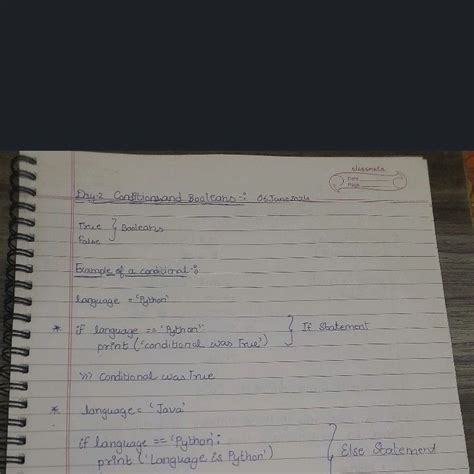 classmate
Date
Page
Day:2 Conditions and Booleans:- 06 June 2024
True } Booleans
False
Example of a conditional:-
language = 'Python'
* if language == 'Python': } If Statement
print ('conditional was True')
>>> Conditional was True
* language = 'Java'
if language == 'Python': } Else Statement
print ('Language is Python')